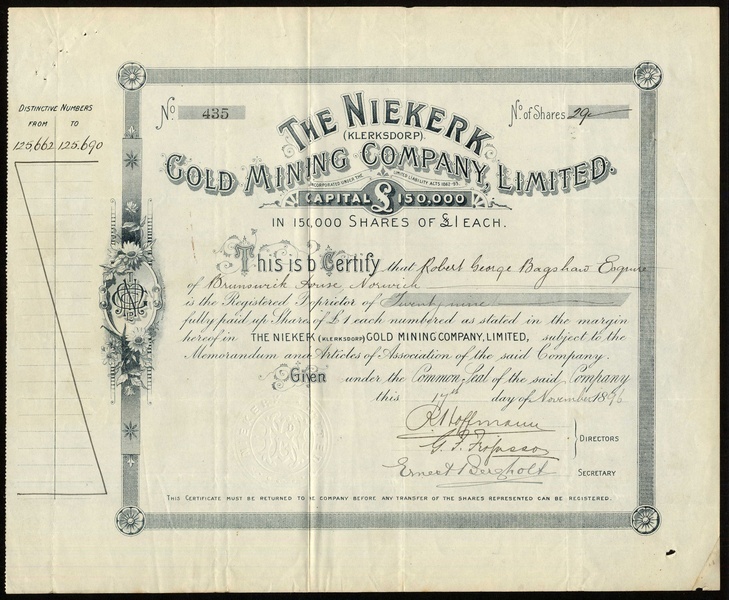 DISTINCTIVE NUMBERS
FROM TO
125,662 125,690
No. 435
No. of Shares 29
THE NIEKERK
(KLERKSDORP)
GOLD MINING COMPANY, LIMITED.
INCORPORATED UNDER THE LIMITED LIABILITY ACTS 1862-93.
CAPITAL £150,000
IN 150,000 SHARES OF £1 EACH.
This is to Certify that Robert George Bagshaw Esquire
of Brunswick House Norwich
is the Registered Proprietor of Twenty nine
fully paid up Shares of £1 each numbered as stated in the margin
hereof in THE NIEKERK (KLERKSDORP) GOLD MINING COMPANY, LIMITED, subject to the
Memorandum and Articles of Association of the said Company.
Given under the Common Seal of the said Company
this 17th day of November 1896
R. Hoffmann
DIRECTORS
Ernest Bergholt
SECRETARY
THIS CERTIFICATE MUST BE RETURNED TO THE COMPANY BEFORE ANY TRANSFER OF THE SHARES REPRESENTED CAN BE REGISTERED.